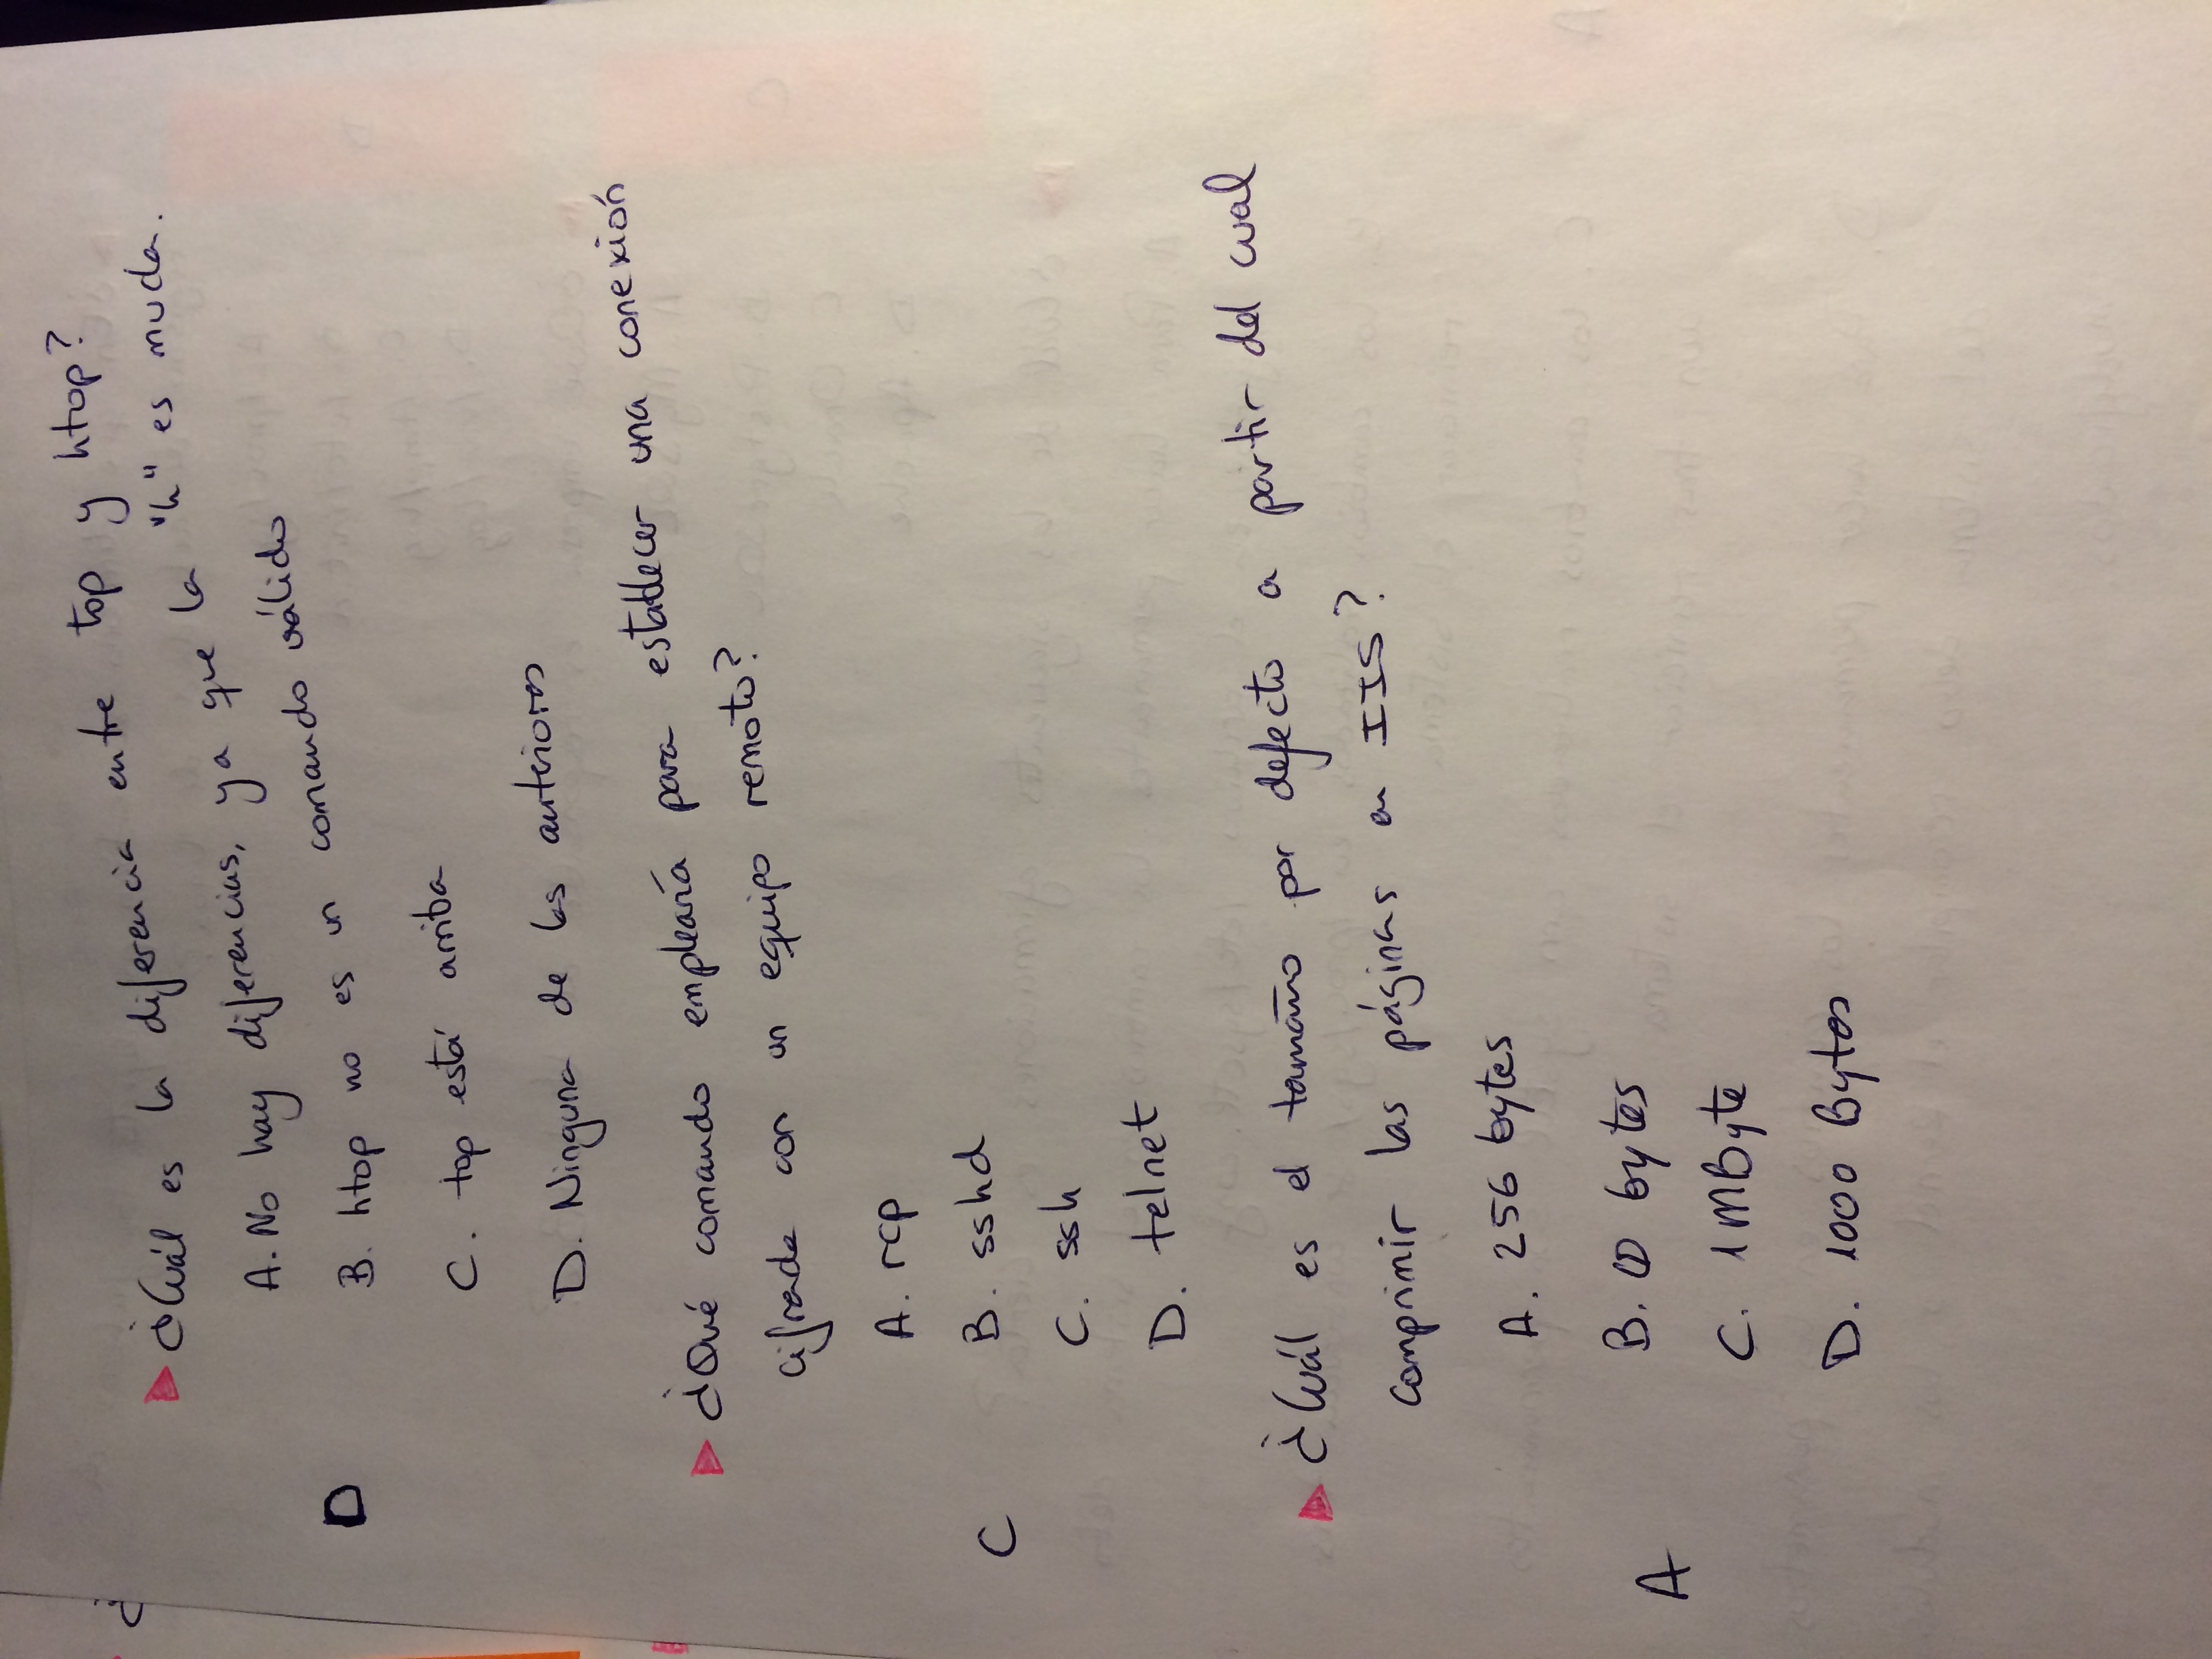 ¿Cuál es la diferencia entre top y htop?
A. No hay diferencias, ya que la "h" es muda.
D
B. htop no es un comando válido
C. top está arriba
D. Ninguna de las anteriores
¿Qué comando emplearía para establecer una conexión
cifrada con un equipo remoto?
A. rcp
B. sshd
C
C. ssh
D. telnet
¿Cuál es el tamaño por defecto a partir del cual
comprimir las páginas en IIS?
A. 256 bytes
B. 0 bytes
A
C. 1 MByte
D. 1000 Bytes